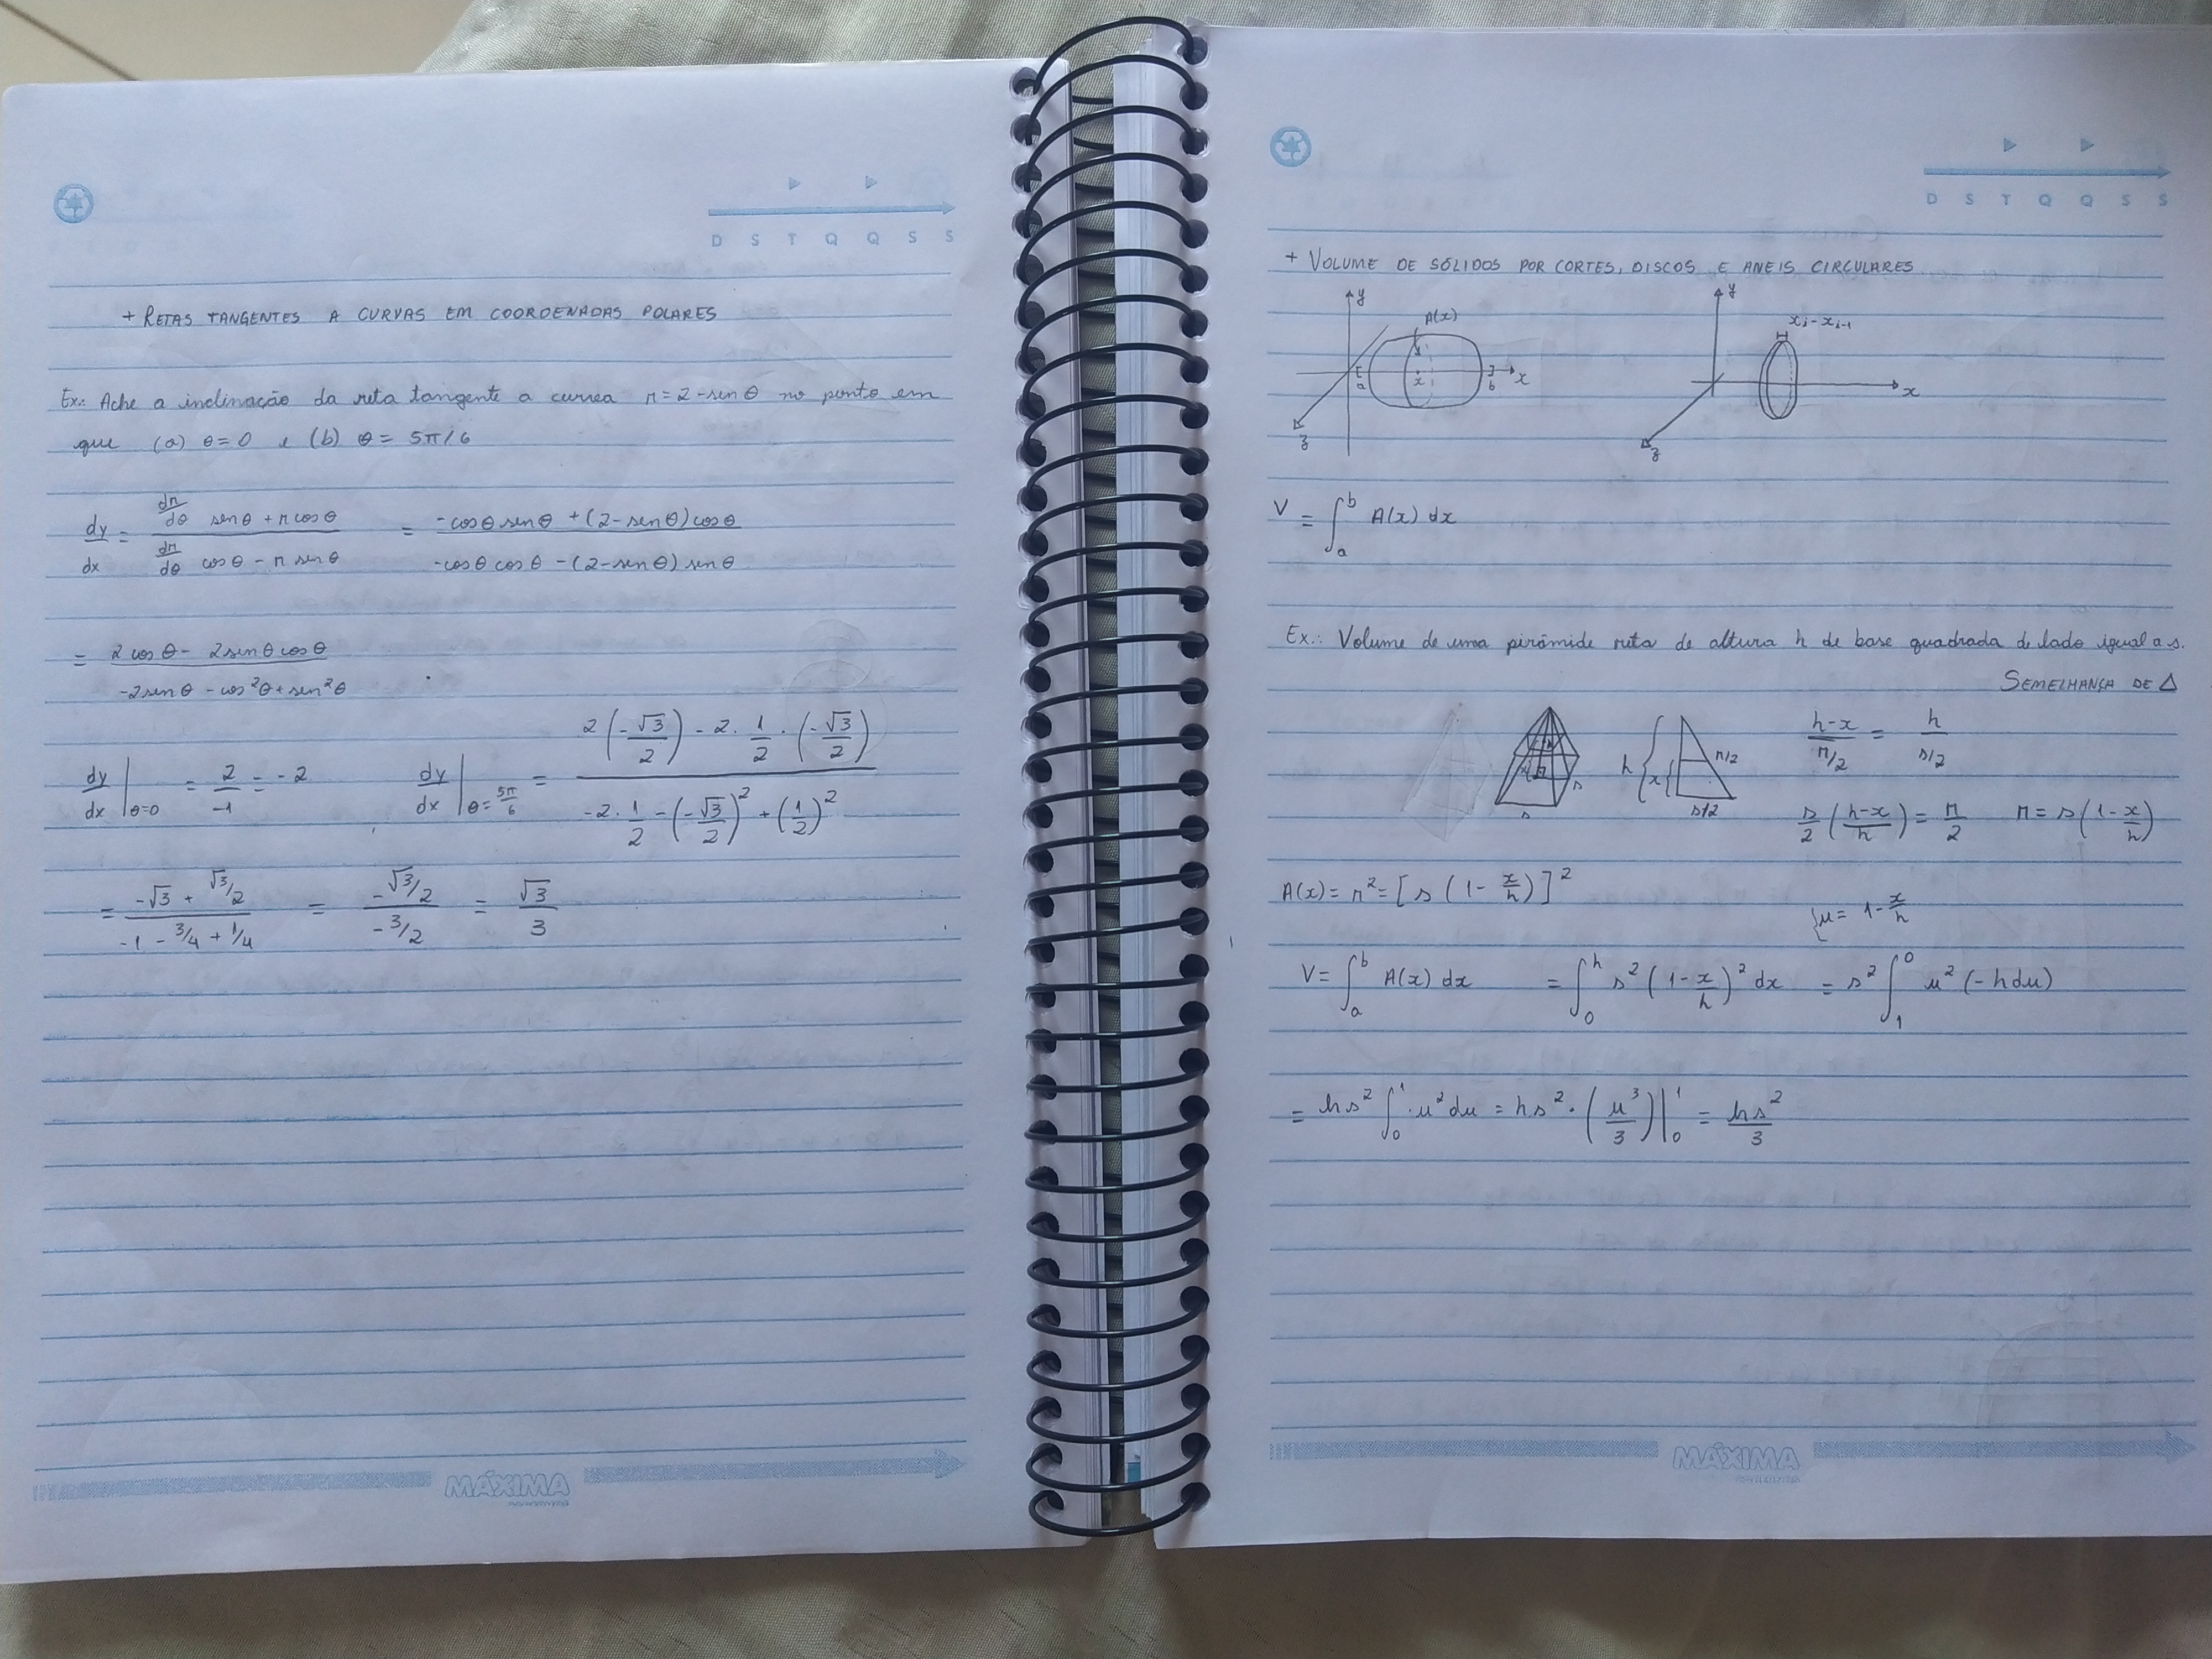 D S T Q Q S S
+ RETAS TANGENTES A CURVAS EM COORDENADAS POLARES
Ex.: Ache a inclinação da reta tangente a curva r = 2 - sen θ no ponto em
que (a) θ = 0 e (b) θ = 5π/6
dy/dx = (dr/dθ sen θ + r cos θ)/(dr/dθ cos θ - r sen θ) = (-cos θ sen θ + (2 - sen θ) cos θ)/(-cos θ cos θ - (2 - sen θ) sen θ)
= (2 cos θ - 2 sen θ cos θ)/(-2 sen θ - cos²θ + sen²θ)
dy/dx | θ=0 = 2/-1 = -2 dy/dx | θ = 5π/6 = (2(-√3/2) - 2 . 1/2 . (-√3/2))/(-2 . 1/2 - (-√3/2)² + (1/2)²)
= (-√3 + √3/2)/(-1 - 3/4 + 1/4) = (-√3/2)/(-3/2) = √3/3
MÁXIMA
D S T Q Q S S
+ VOLUME DE SÓLIDOS POR CORTES, DISCOS E ANEIS CIRCULARES
y A(x) a x b x z
y xi - xi-1 x z
V = ∫a^b A(x) dx
Ex.: Volume de uma pirâmide reta de altura h de base quadrada de lado igual a s.
SEMELHANÇA DE Δ
s s h x r/2 s/2 (h-x)/(r/2) = h/(s/2)
s/2 ((h-x)/h) = r/2 r = s(1 - x/h)
A(x) = r² = [s(1 - x/h)]²
{u = 1 - x/h
V = ∫a^b A(x) dx = ∫0^h s²(1 - x/h)² dx = s² ∫1^0 u²(-h du)
= hs² ∫0^1 . u² du = hs² . (u³/3)|0^1 = hs²/3
MÁXIMA